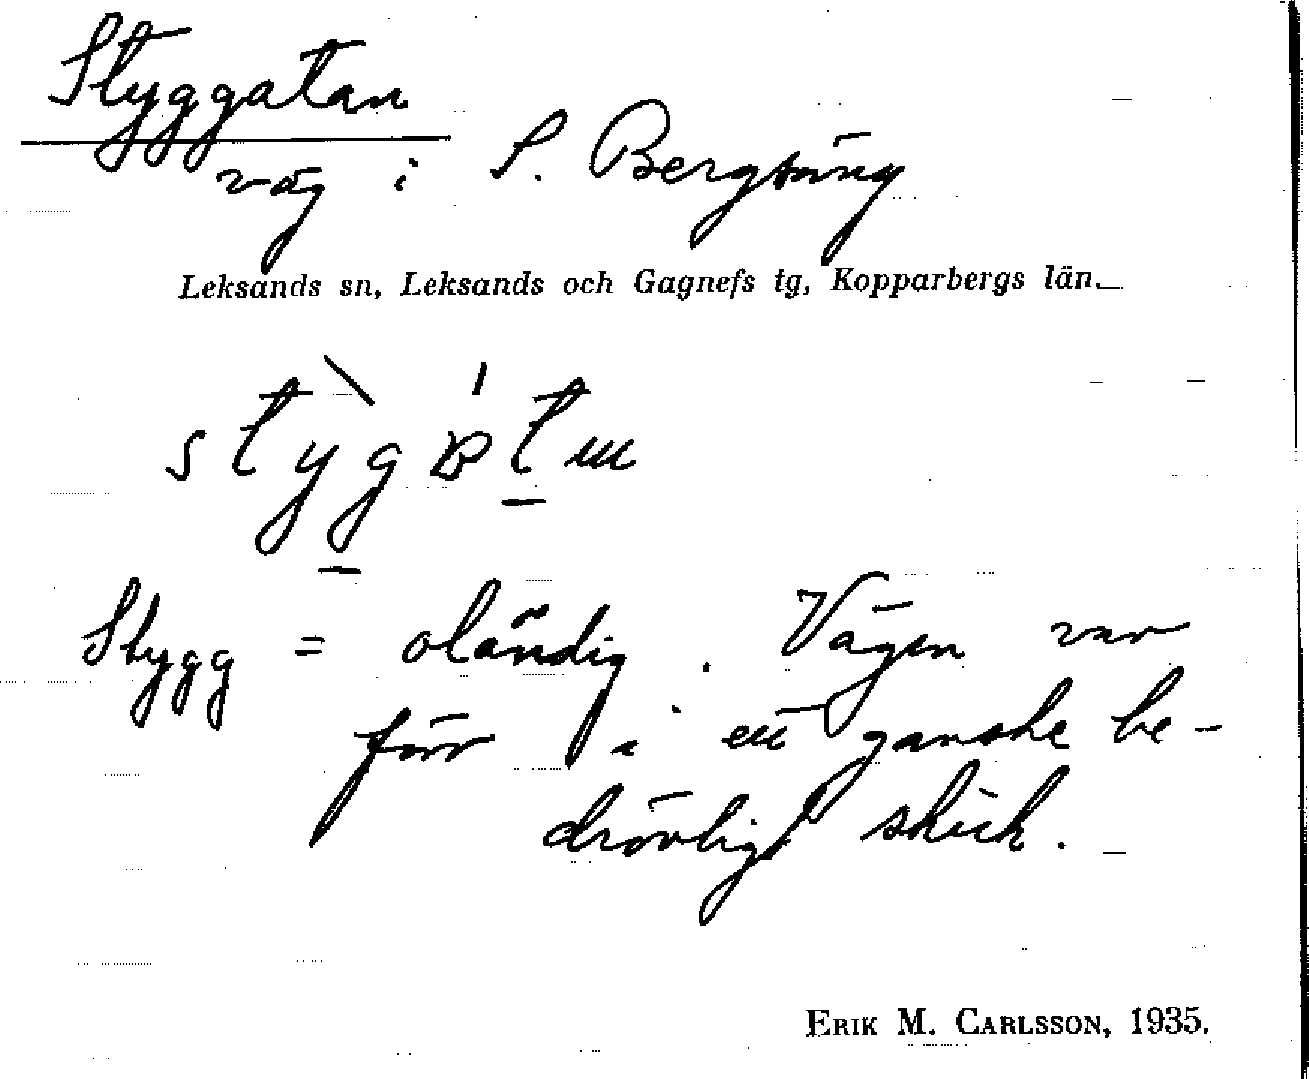 Styggatan
väg i S. Bergsäng
Leksands sn, Leksands och Gagnefs tg, Kopparbergs län.
Stygg = oländig. Vägen var
förr i ett ganska be-
drövligt skick.
ERIK M. CARLSSON, 1935.